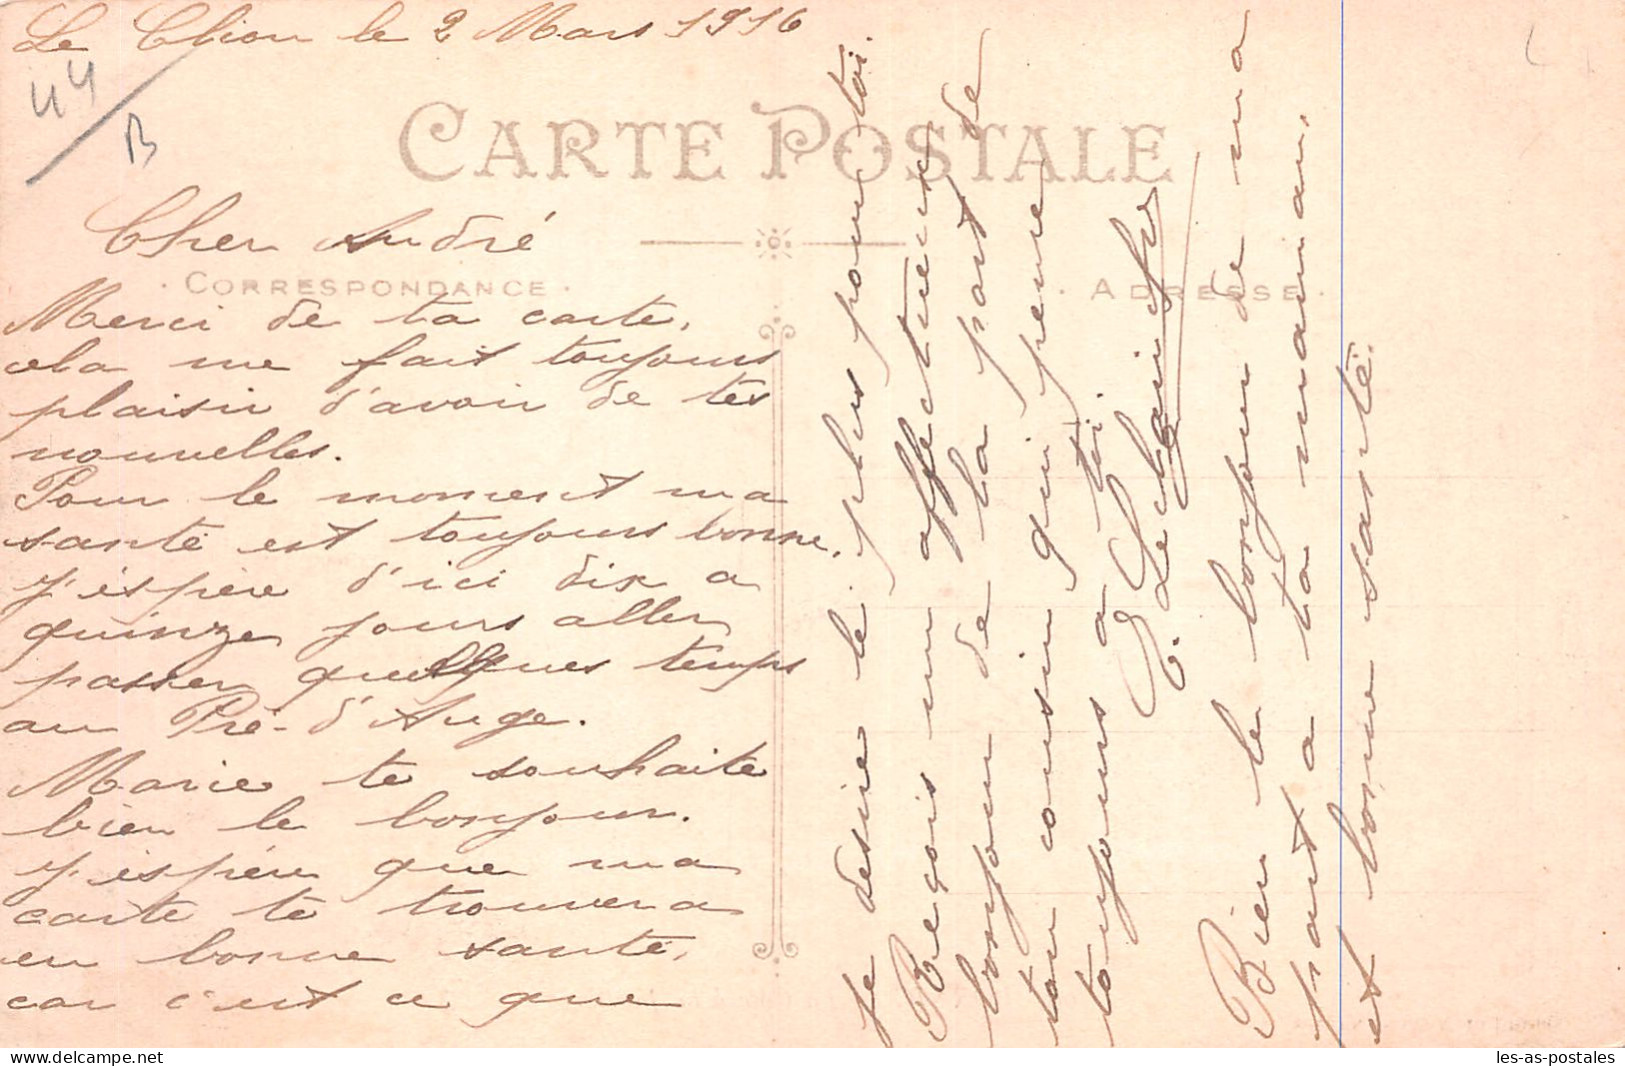 Le Clion le 2 Mars 1916
44
B
CARTE POSTALE
Cher André
CORRESPONDANCE
ADRESSE
Merci de ta carte,
cela me fait toujours
plaisir d'avoir de tes
nouvelles.
Pour le moment ma
santé est toujours bonne,
j'éspère d'ici dix a
quinze jours aller
passer quelques temps
au Pré-d'Auge.
Marie te souhaite
bien le bonjour.
j'éspére que ma
carte te trouvera
en bonne santé,
car c'est ce que
je desire le plus pour toi.
Reçois un affectueux
bonjour de la part de
ton cousin qui pense
toujours a toi.
E. Leclair
Bien le bonjour de ma
part a ta maman,
et bonne santé.
les-as-postales